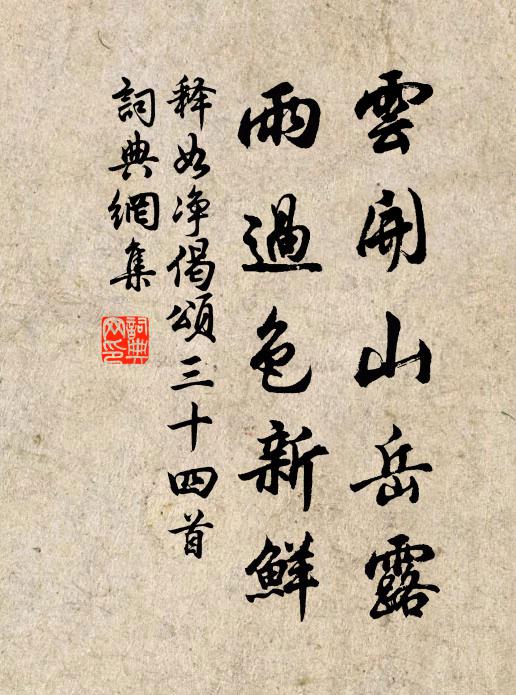 雲開山岳露
雨過色新鮮
释如净偈頌三十四首
詞典網集
詞典
网印